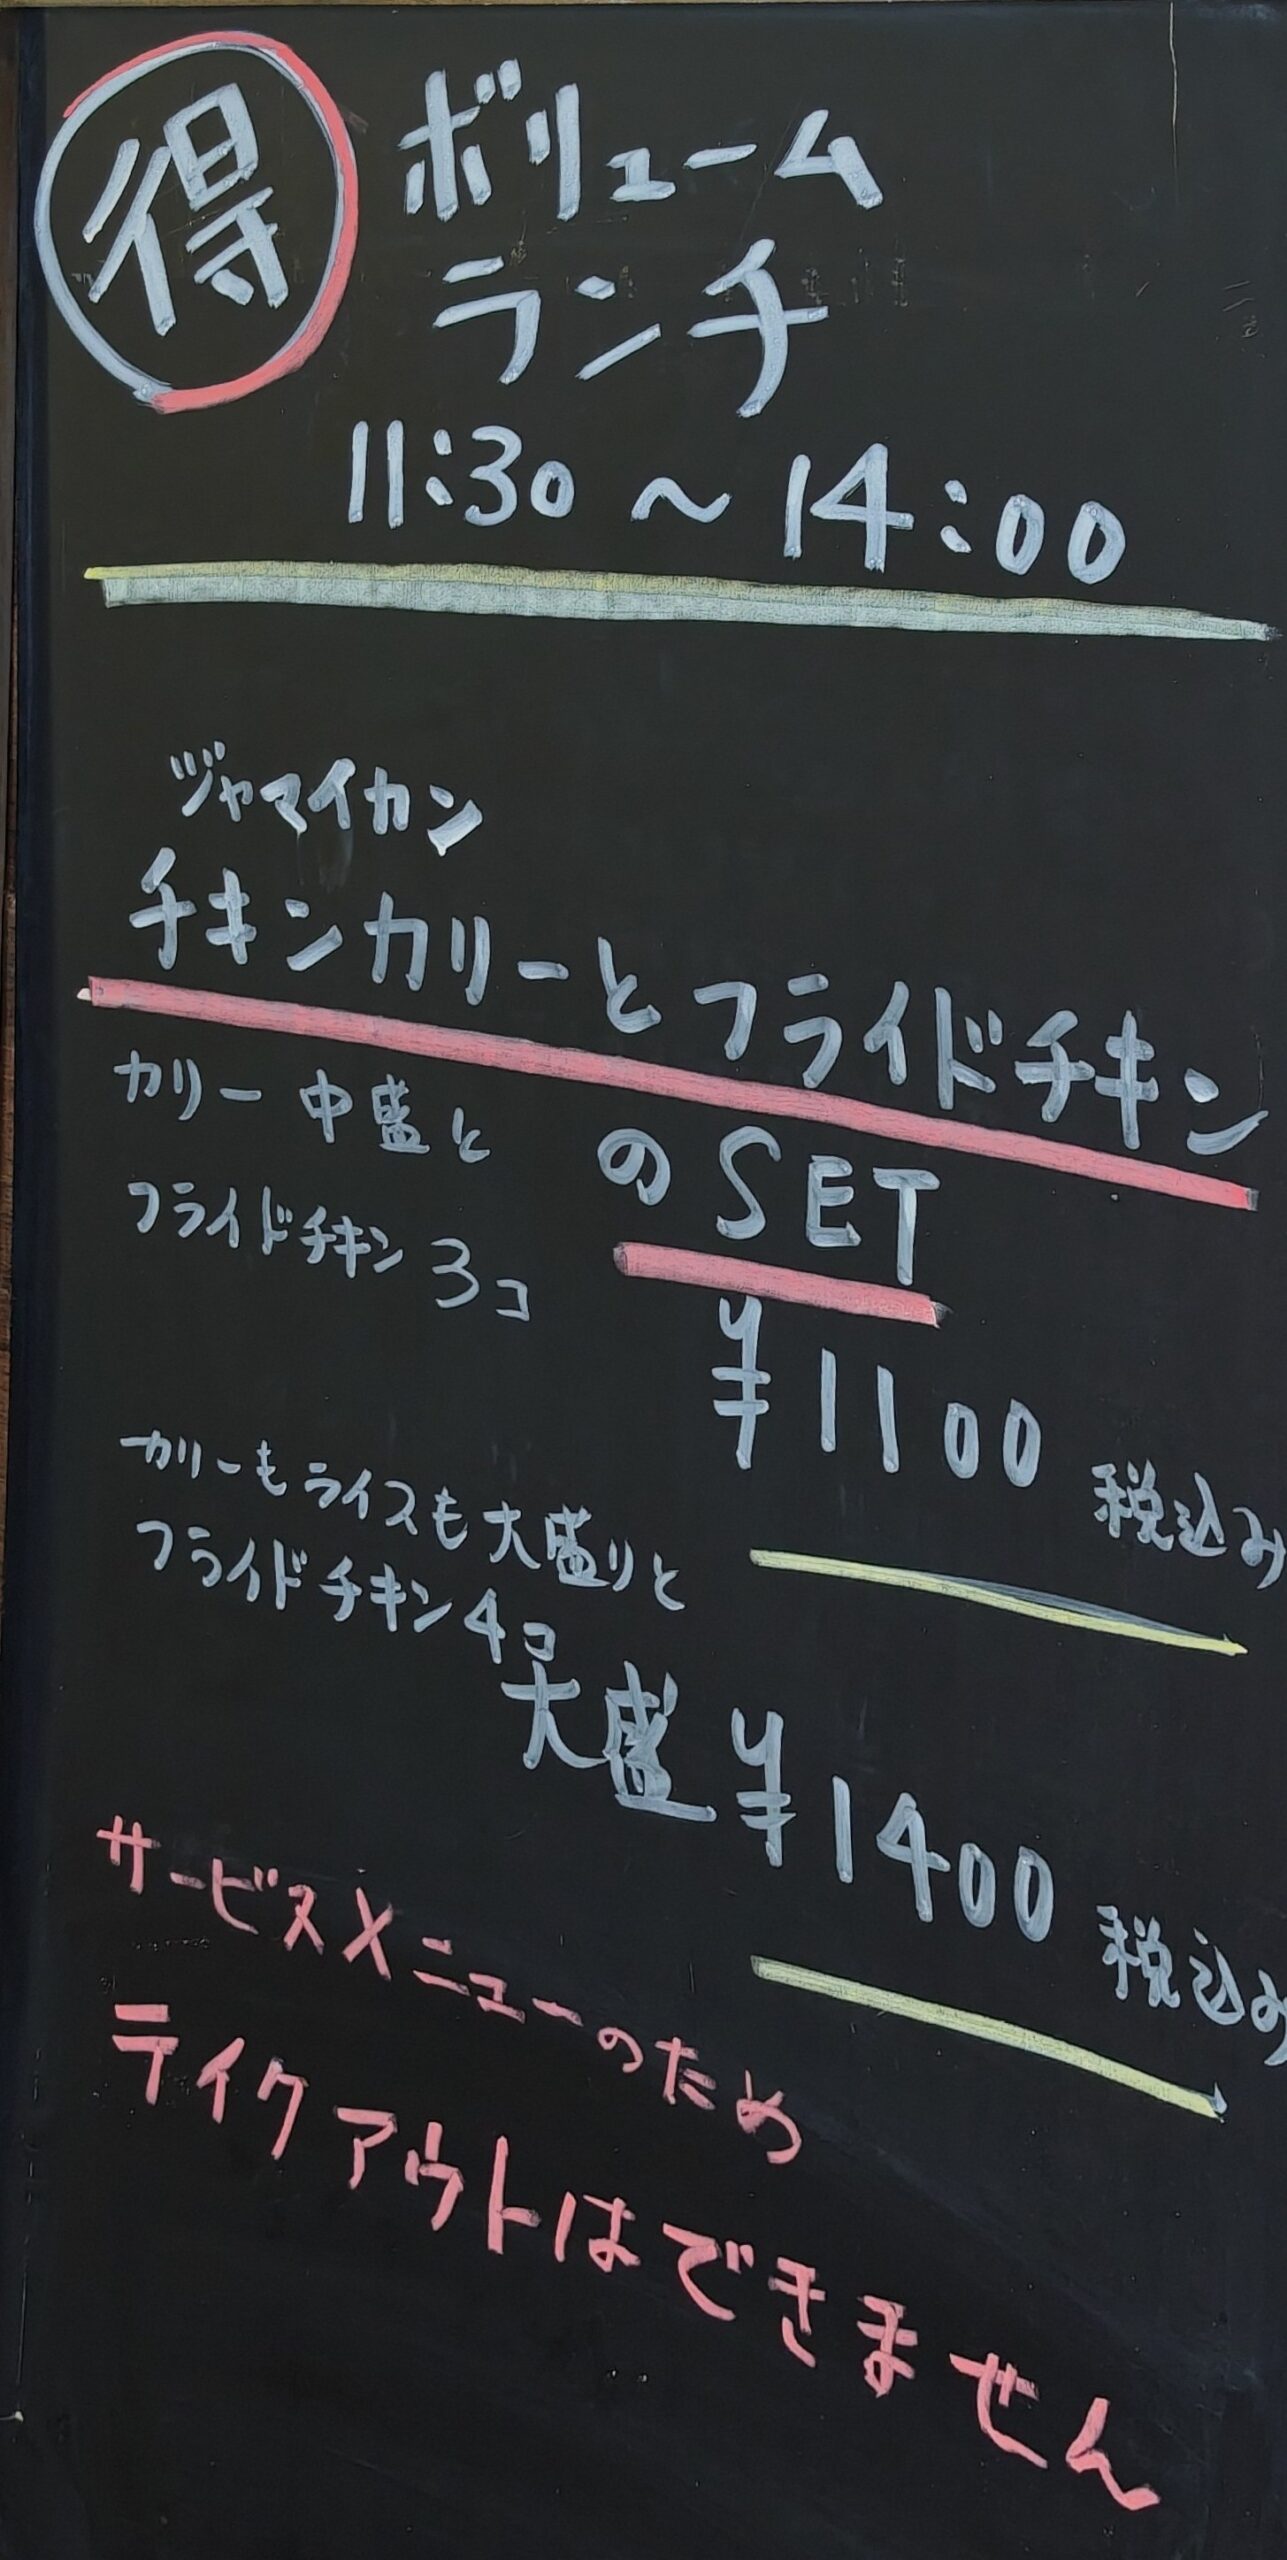 得 ボリューム
ランチ
11:30～14:00
ジャマイカン
チキンカリーとフライドチキン
のSET
カリー中盛と
フライドチキン3コ
¥1100 税込み
カリーもライスも大盛りと
フライドチキン4コ
大盛 ¥1400 税込み
サービスメニューのため
テイクアウトはできません